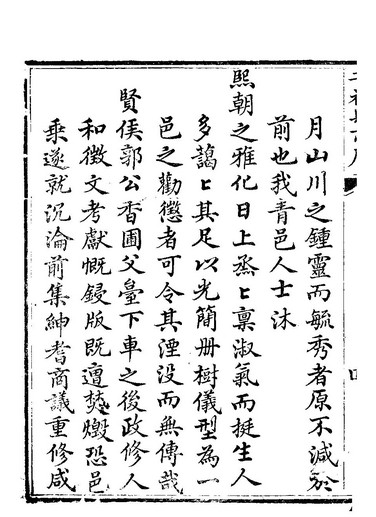 月山川之鍾靈而毓秀者原不減於
前也我青邑人士沐
熙朝之雅化日上烝〻稟淑氣而挺生人
多藹〻其足以光簡册樹儀型為一
邑之勸懲者可令其湮没而無傳哉
賢侯郭公香圃父臺下車之後政修人
和徵文考獻慨鋟版既遭焚燬恐邑
乘遂就沉淪前集紳耆商議重修咸